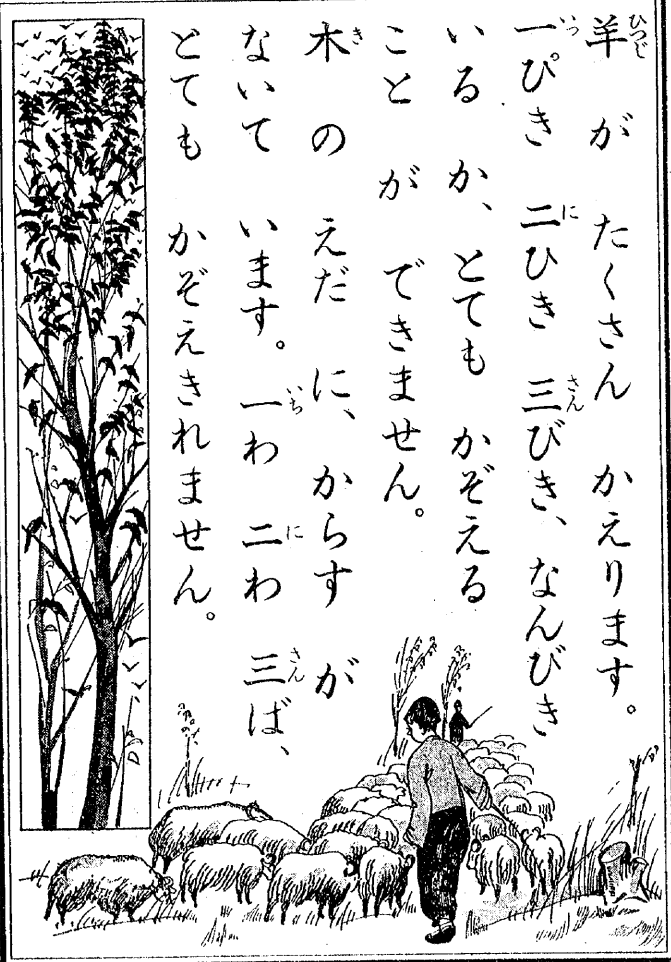 羊が たくさん かえります。
一ぴき 二ひき 三びき、なんびき
いる か、とても かぞえる
こと が できません。
木 の えだ に、からす が
ないて います。一わ 二わ 三ば、
とても かぞえきれません。